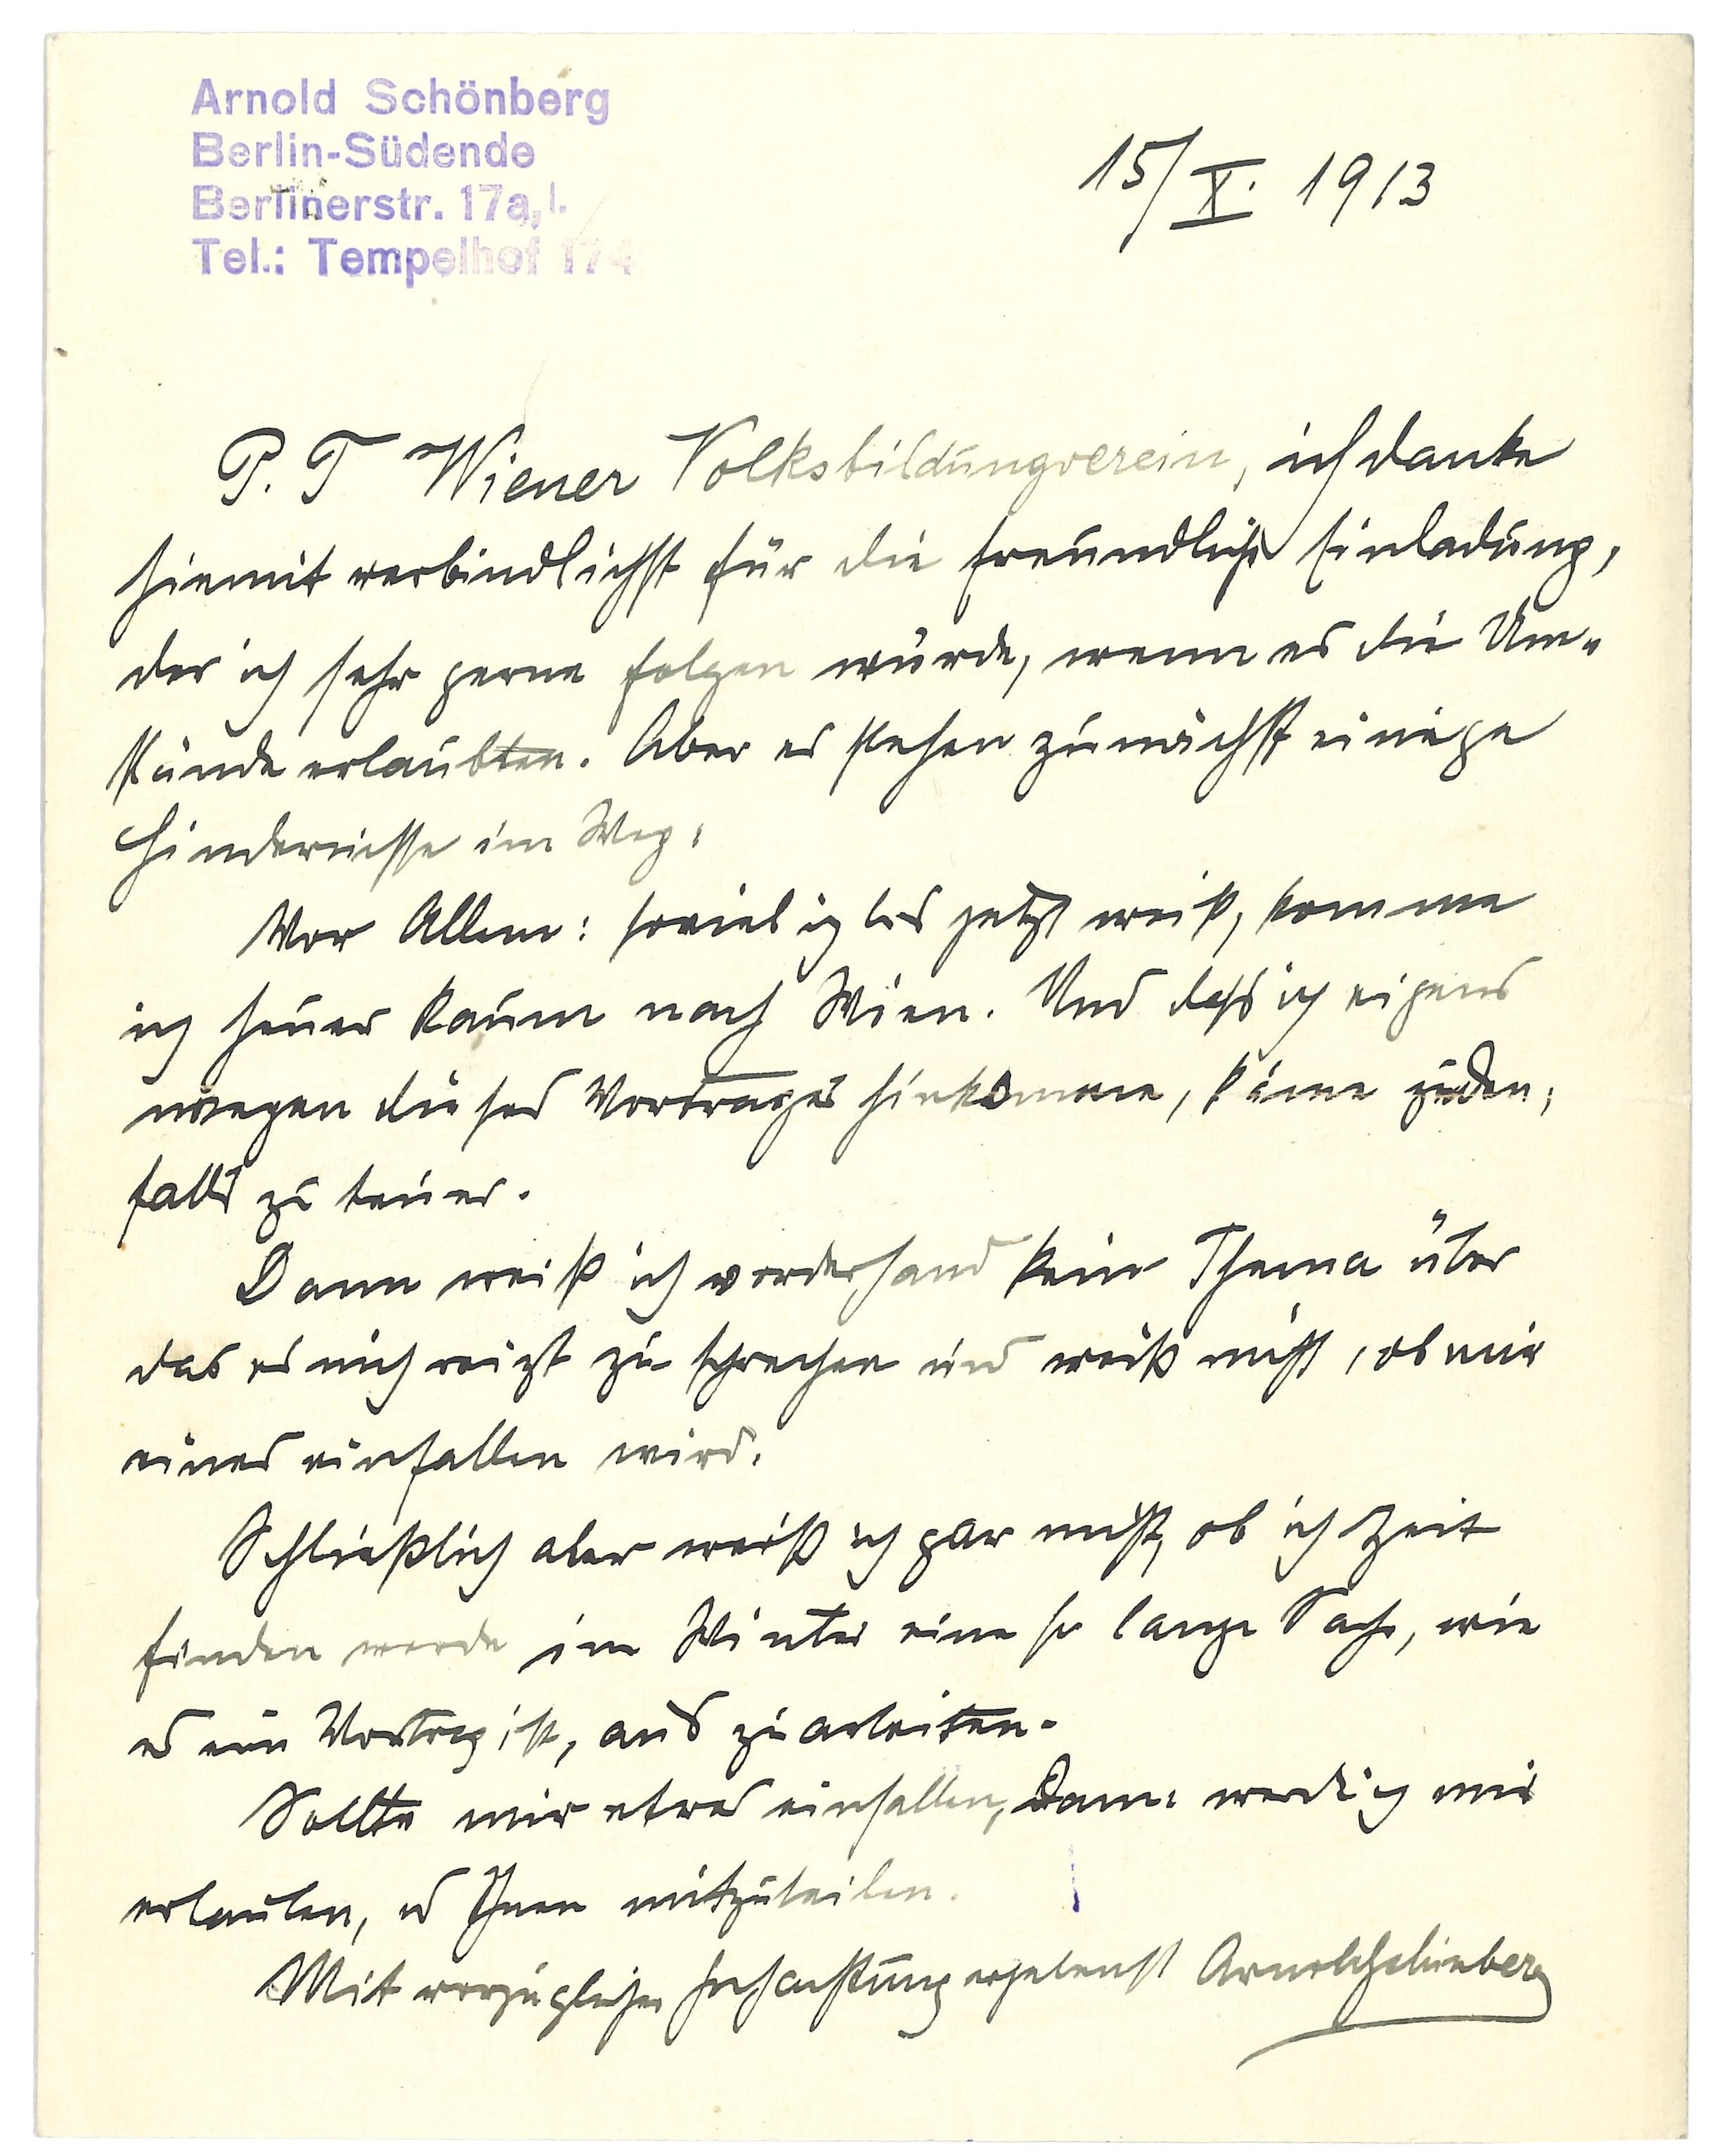 Arnold Schönberg
Berlin-Südende
Berlinerstr. 17a, I.
Tel.: Tempelhof 174
15/X. 1913
P. T Wiener Volksbildungverein, ich danke
hiemit verbindlichst für die freundliche Einladung,
der ich sehr gerne folgen würde, wenn es die Um-
stände erlaubten. Aber es stehen zunächst einige
Hindernisse im Weg:
Vor Allem: soviel ich bis jetzt weiß, komme
ich heuer kaum nach Wien. Und dass ich eigens
wegen dieses Vortrages hinkomme, käme jeden-
falls zu teuer.
Dann weiß ich vorderhand kein Thema über
das es mich reizt zu sprechen und weiß nicht, ob mir
eines einfallen wird.
Schließlich aber weiß ich gar nicht, ob ich Zeit
finden werde im Winter eine so lange Sache, wie
es ein Vortrag ist, auszuarbeiten.
Sollte mir etwas einfallen, dann werde ich mir
erlauben, es Ihnen mitzuteilen.
Mit vorzüglicher Hochachtung ergebenst Arnold Schönberg